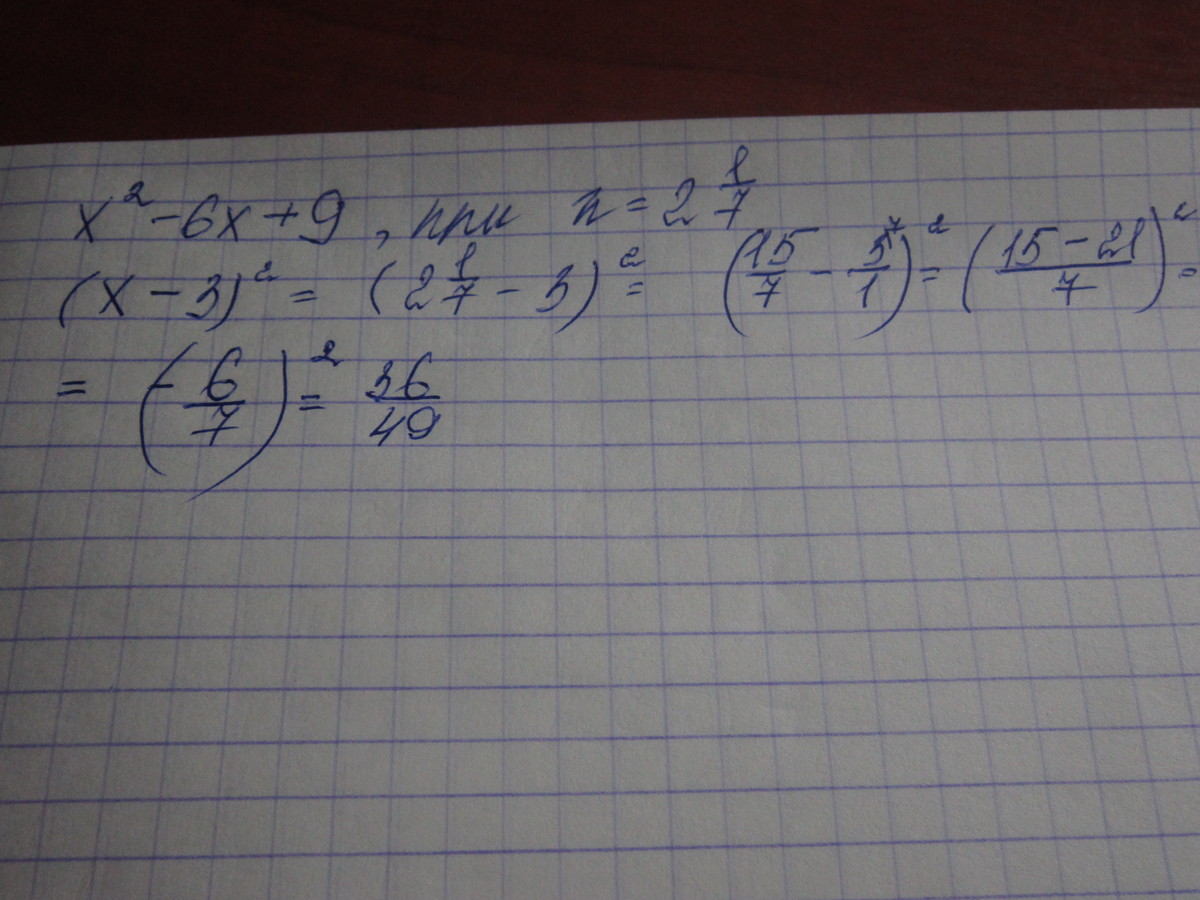 x² - 6x + 9, при x = 2 1/7
(x - 3)² = (2 1/7 - 3)² = (15/7 - 3/1 ⁷)² = ((15 - 21)/7)² =
= (- 6/7)² = 36/49